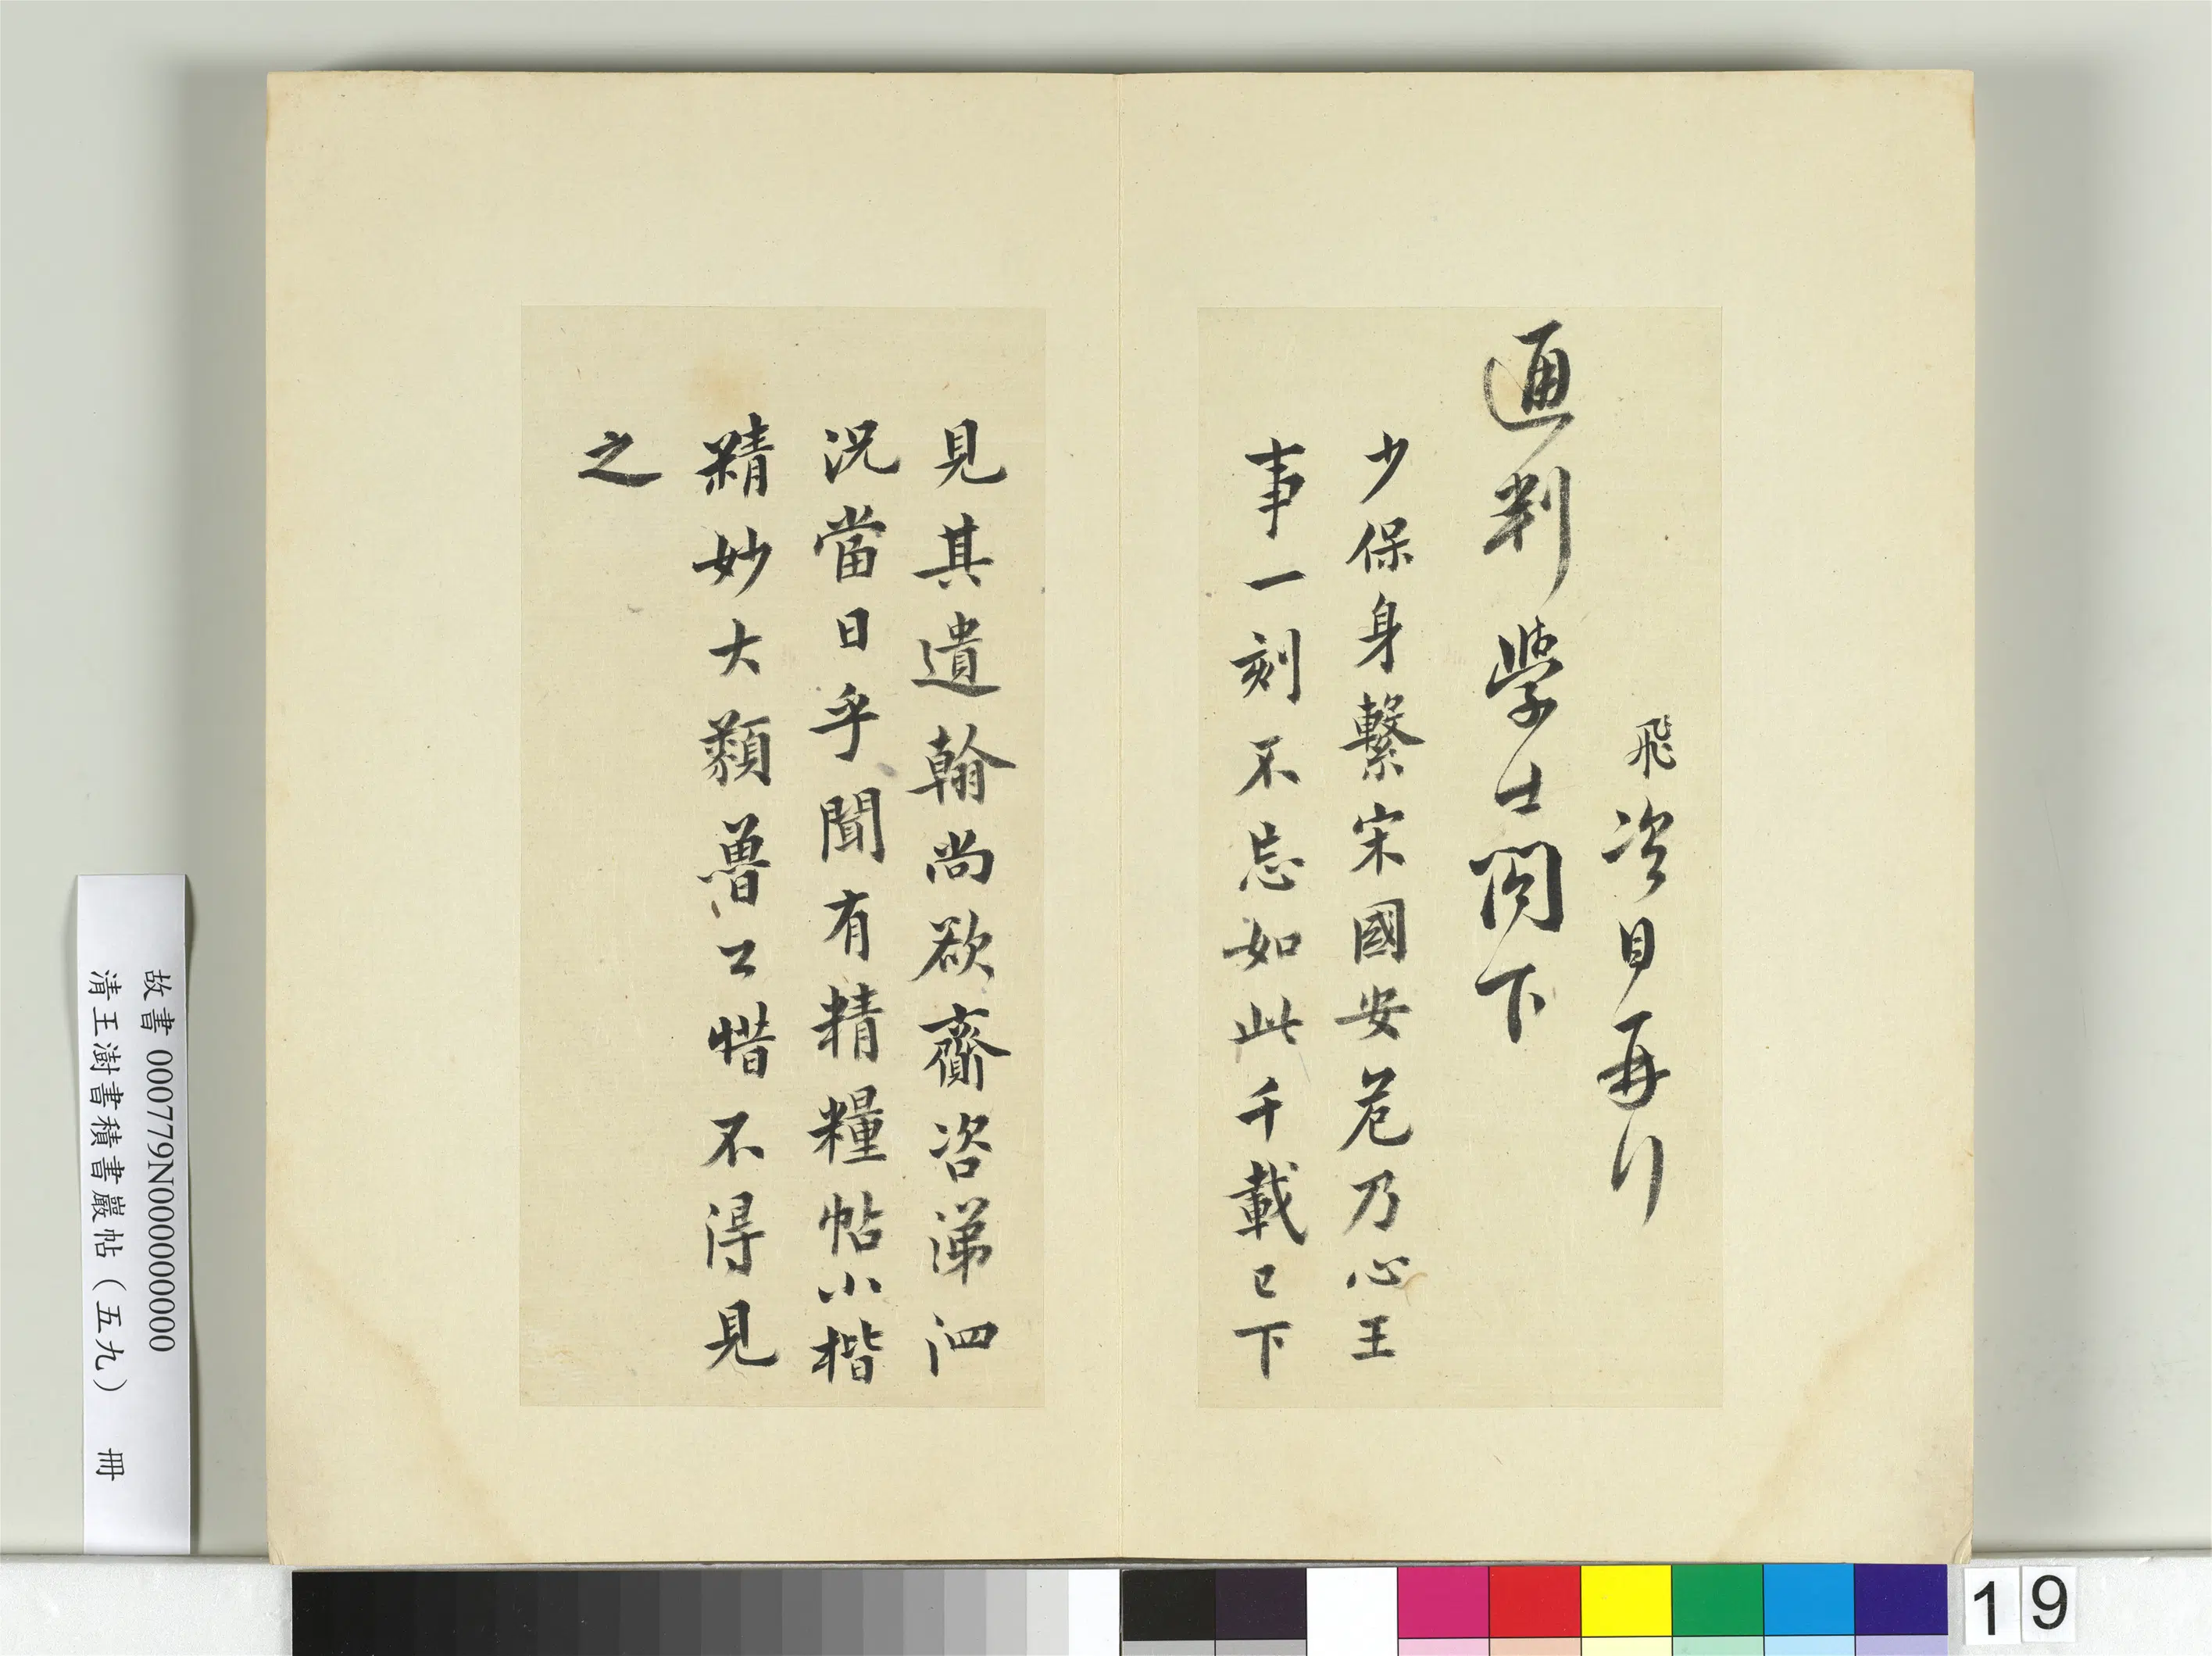 飛咨目再行
通判學士閤下
少保身繫宋國安危乃心王
事一刻不忘如此千載已下
見其遺翰尚欲齎咨涕洟
況當日乎聞有精糧帖小楷
精妙大類魯公惜不得見
之
故書 000779N000000000
清王澍書積書巖帖(五九) 冊
19